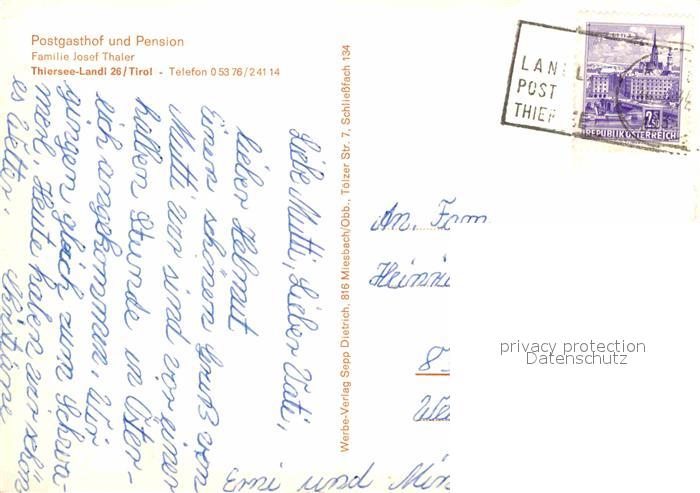 Postgasthof und Pension
Familie Josef Thaler
Thiersee-Landl 26/Tirol - Telefon 0 53 76 / 2 41 14
Liebe Mutti, Lieber Vati,
lieber Helmut
Einen schönen Gruß von
Mutti wir sind vor einer
halben Stunde in Öster-
eich angekommen. Wir
gingen gleich zum
Heute haben wir schön
es Wetter. Christiane
Erni und
Werbe-Verlag Sepp Dietrich, 816 Miesbach/Obb., Tölzer Str. 7, Schließfach 134
LAN
POST
THIER
2.50
REPUBLIK ÖSTERREICH
An. Fam
Heinri
8
We
privacy protection
Datenschutz